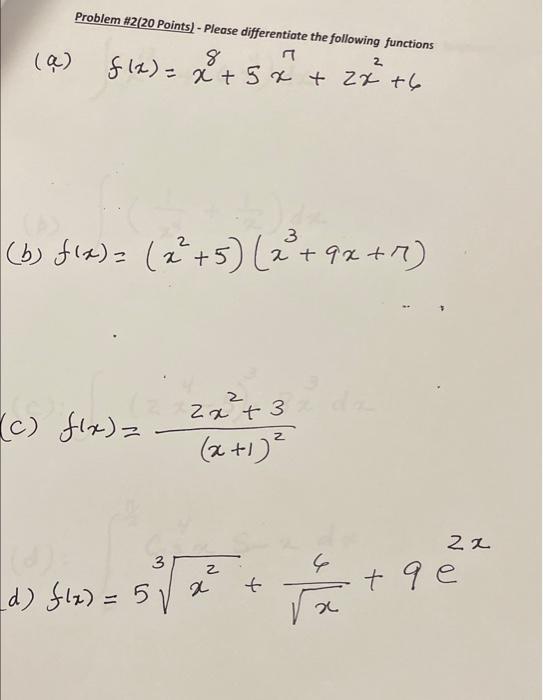 Problem #2(20 Points) - Please differentiate the following functions
(a) f(x) = x⁸ + 5x⁷ + 2x² + 6
(b) f(x) = (x² + 5)(x³ + 9x + 7)
(c) f(x) = (2x² + 3)/(x + 1)²
d) f(x) = 5 ∛x² + 6/√x + 9e²ˣ